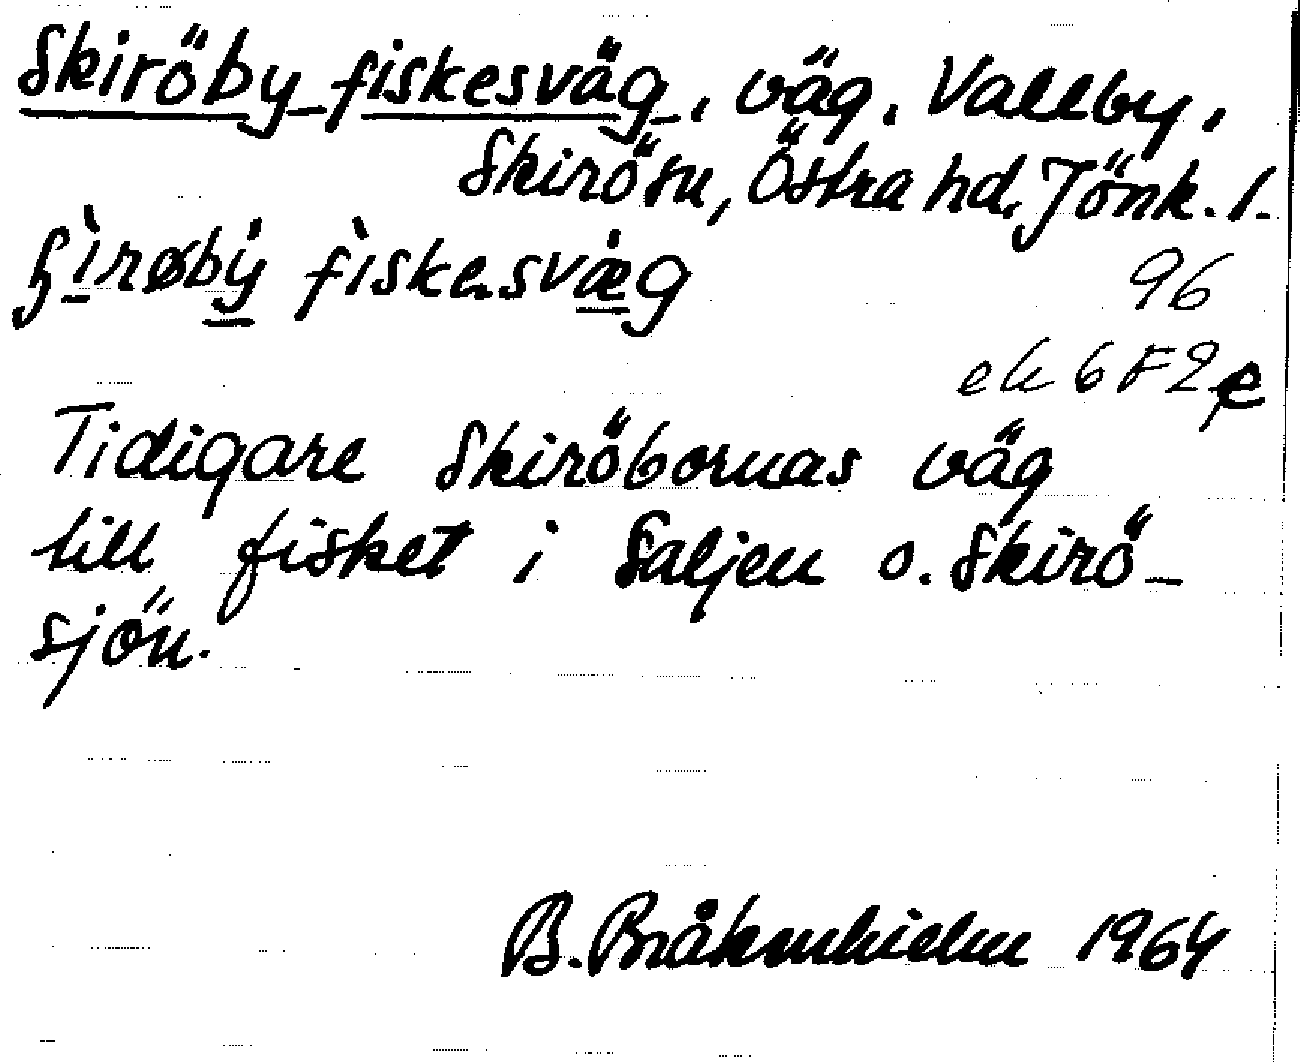 Skiröby fiskesväg, väg, Vallby,
Skirö sn, Östra hd, Jönk. l.
fiskesvæg
96
ek 6 F 2 e
Tidigare Skiröbornas väg
till fisket i Saljen o. Skirö-
sjön.
B. Bråkenhielm 1964